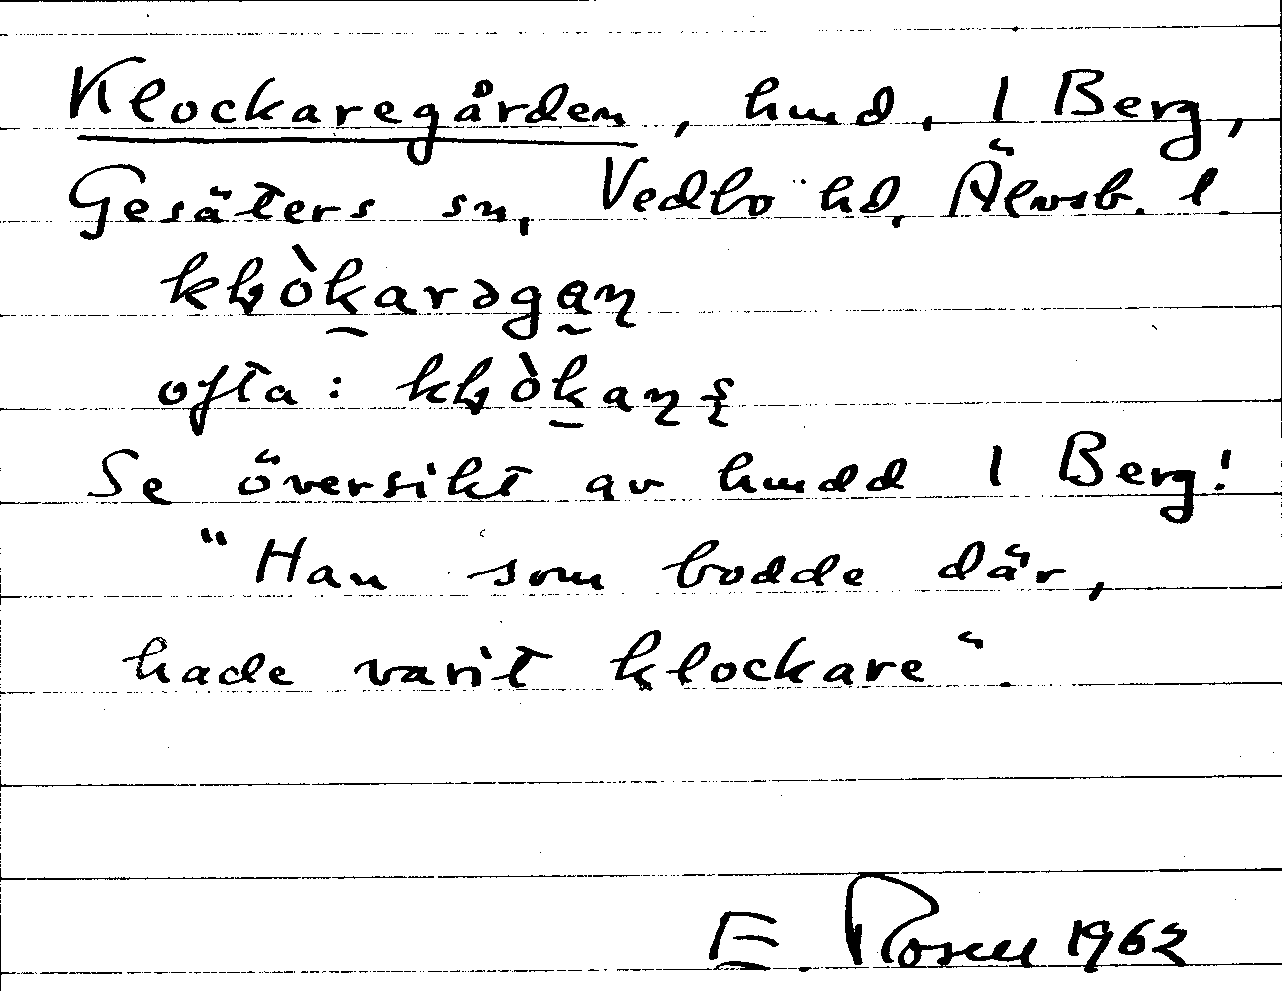 Klockaregården, hmd, 1 Berg,
Gesäters sn, Vedbo hd, Älvsb. l.
ofta:
Se översikt av hmdd 1 Berg!
"Han som bodde där,
hade varit klockare".
E. Rosell 1962